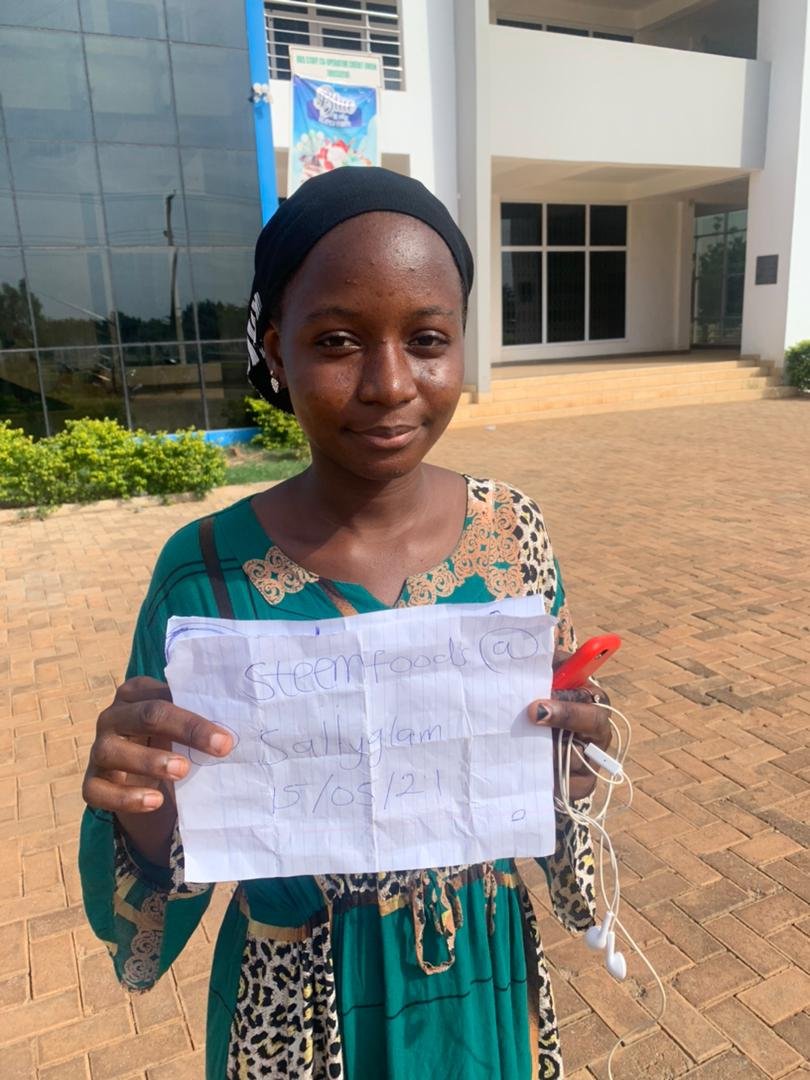 UDS STAFF CO-OPERATIVE CREDIT UNION
Steemfoods @
@ Sallyglam
15/05/21